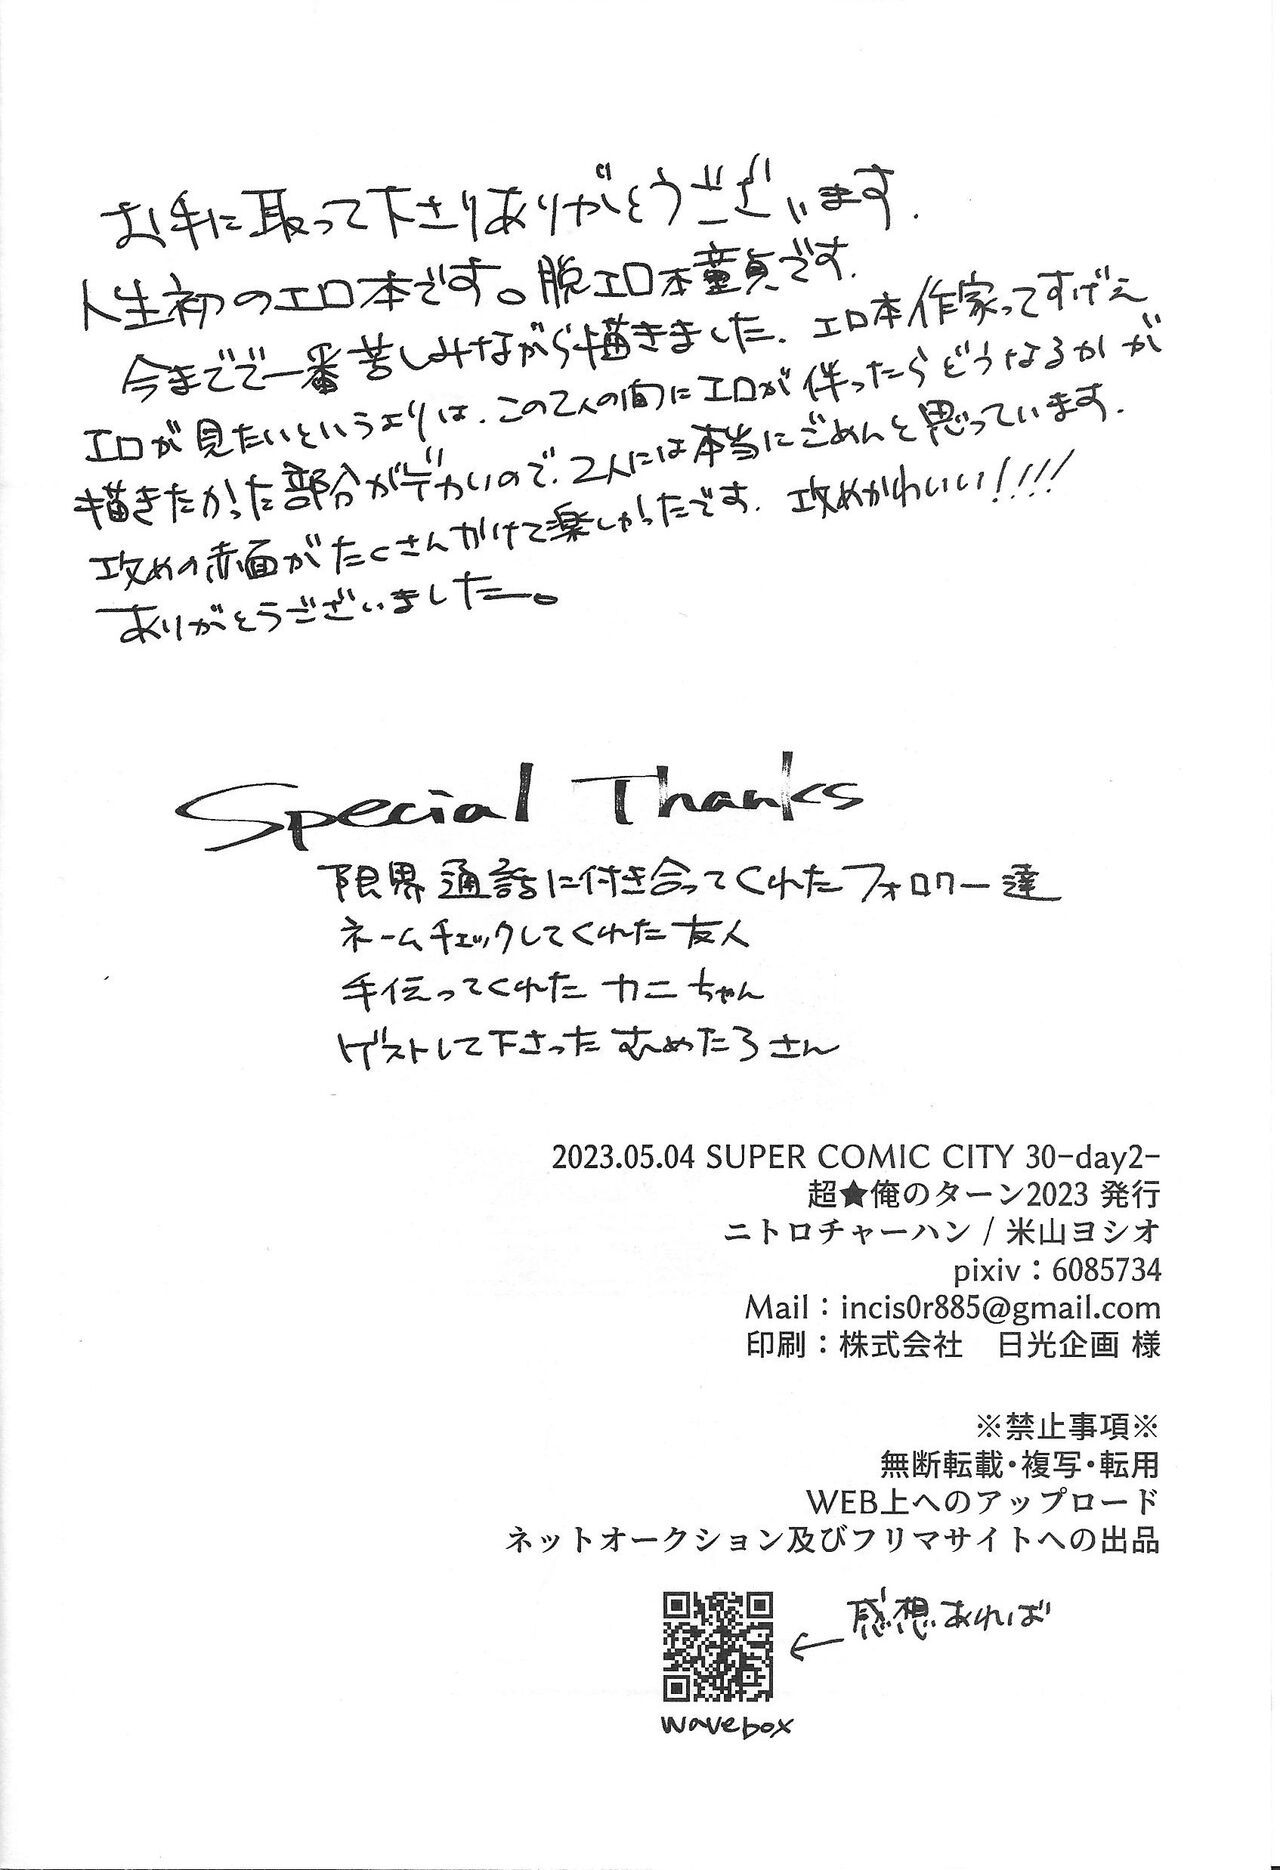 お手に取って下さりありがとうございます.
人生初のエロ本です。脱エロ本童貞です.
今までで一番苦しみながら描きました. エロ本作家ってすげえ
エロが見たいというよりは、この2人の間にエロが伴ったらどうなるかが
描きたかった部分がデカいので、2人には本当にごめんと思っています.
攻めの赤面がたくさんかけて楽しかったです. 攻めかわいい!!!!
ありがとうございました―。
Special Thanks
限界通話に付き合ってくれたフォロワー達
ネームチェックしてくれた友人
手伝ってくれた カニちゃん
ゲストして下さった むめたろさん
2023.05.04 SUPER COMIC CITY 30-day2-
超★俺のターン2023 発行
ニトロチャーハン / 米山ヨシオ
pixiv：6085734
Mail：incis0r885@gmail.com
印刷：株式会社　日光企画 様
※禁止事項※
無断転載・複写・転用
WEB上へのアップロード
ネットオークション及びフリマサイトへの出品
感想あれば
wavebox